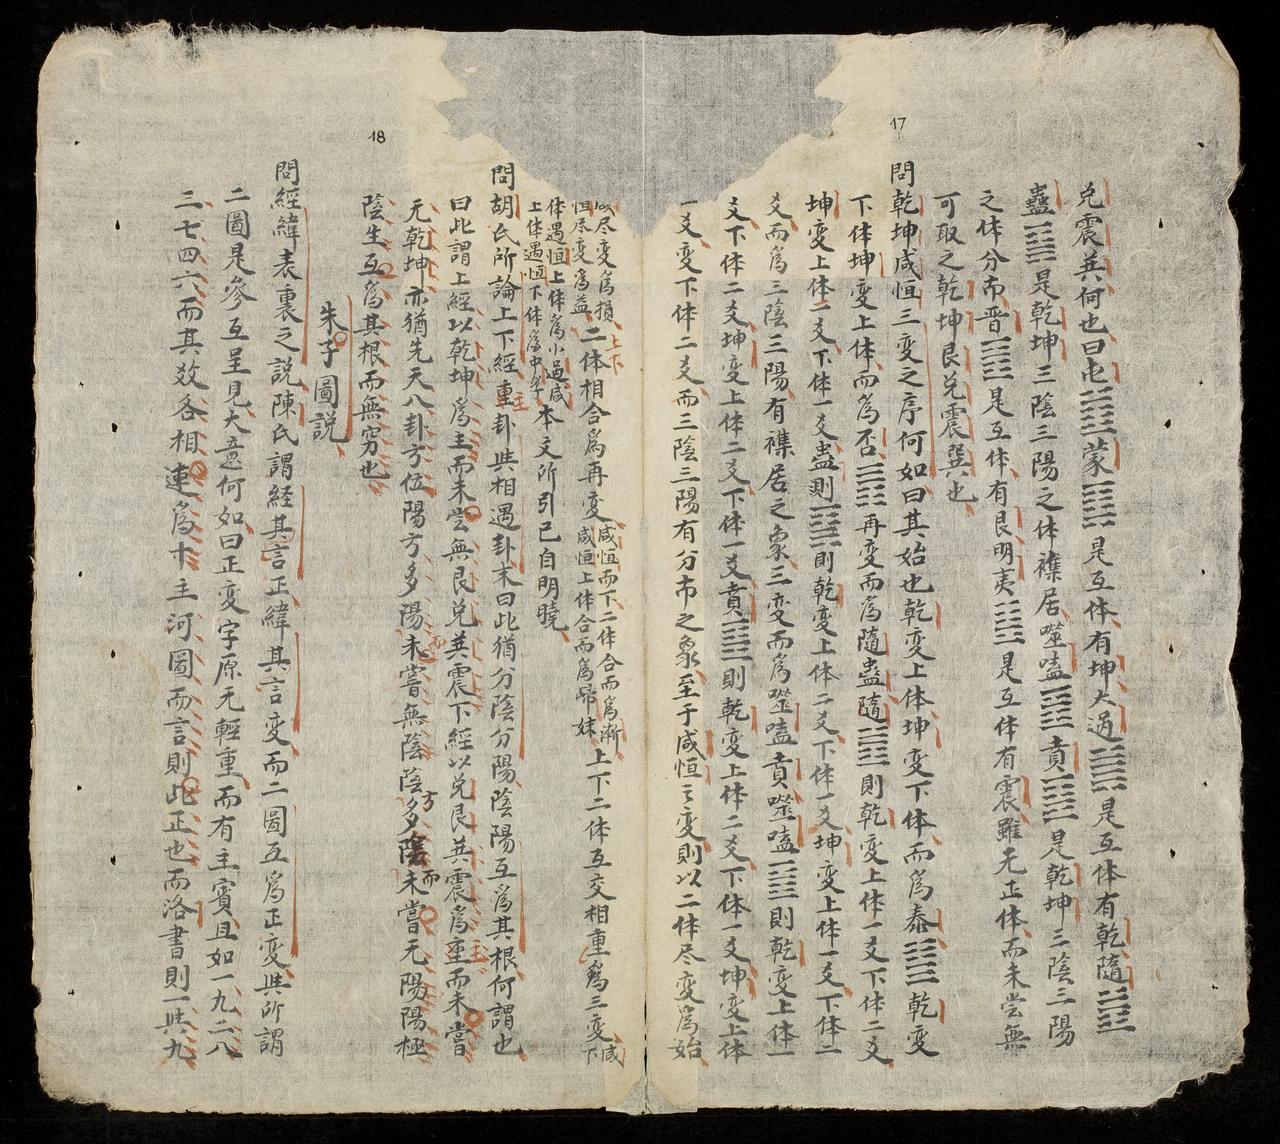 17
兌震並何也曰屯䷂蒙䷃是互体有坤大過䷛是互体有乾隨䷐
蠱䷑是乾坤三陰三陽之体襍居噬嗑䷔賁䷕是乾坤三陰三陽
之体分布晋䷢是互体有艮明夷䷣是互体有震雖无正体而未尝無
可取之乾坤艮兌震巽也
問乾坤咸恒三变之序何如曰其始也乾变上体坤变下体而為泰䷊乾变
下体坤变上体而為否䷋再变而為隨蠱隨䷐則乾变上体一爻下体二爻
坤变上体二爻下体一爻蠱則䷑則乾变上体二爻下体一爻坤变上体一爻下体二
爻而為三陰三陽有襍居之象三变而為噬嗑賁噬嗑䷔則乾变上体一
爻下体二爻坤变上体二爻下体一爻賁䷕則乾变上体二爻下体一爻坤变上体
一爻变下体二爻而三陰三陽有分布之象至于咸恒之变則以二体尽变為始
咸尽变為損
恒尽变為益
上下
二体相合爲再变
咸恒而下二体合而爲漸
咸恒上体合而爲歸妹
上下二体互交相重爲三变
咸下
体遇恒上体爲小過咸
上体遇恒下体爲中孚
本文所引已自明曉
問胡氏所論上下經重卦與相遇卦末曰此猶分陰分陽陰陽互爲其根何謂也
主
曰此謂上經以乾坤爲主而未尝無艮兌巽震下經以兌艮巽震爲重而未嘗
主
无乾坤亦猶先天八卦方位陽方多陽未嘗無陰陰多陰未嘗无陽陽極
而
方
而
陰生互爲其根而無穷也
18
朱子圖説
問經緯表裏之説陳氏謂経其言正緯其言变而二圖互爲正变與所謂
二圖是參互呈見大意何如曰正变字原无輕重而有主賓且如一九二八
三七四六而其效各相連爲十主河圖而言則此正也而洛書則一與九